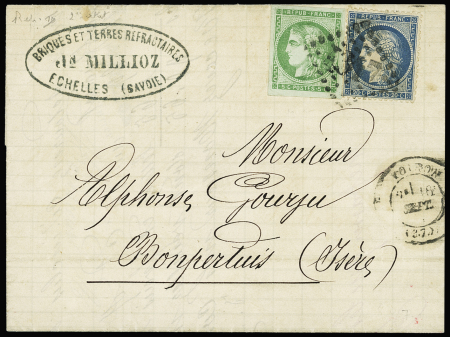 BRIQUES ET TERRES REFRACTAIRES
JN MILLIOZ
ECHELLES (SAVOIE)
REPUB. FRANC.
REPUB. FRANC.
Monsieur
Alphonse Gourju
Bonpertuis (Isère)